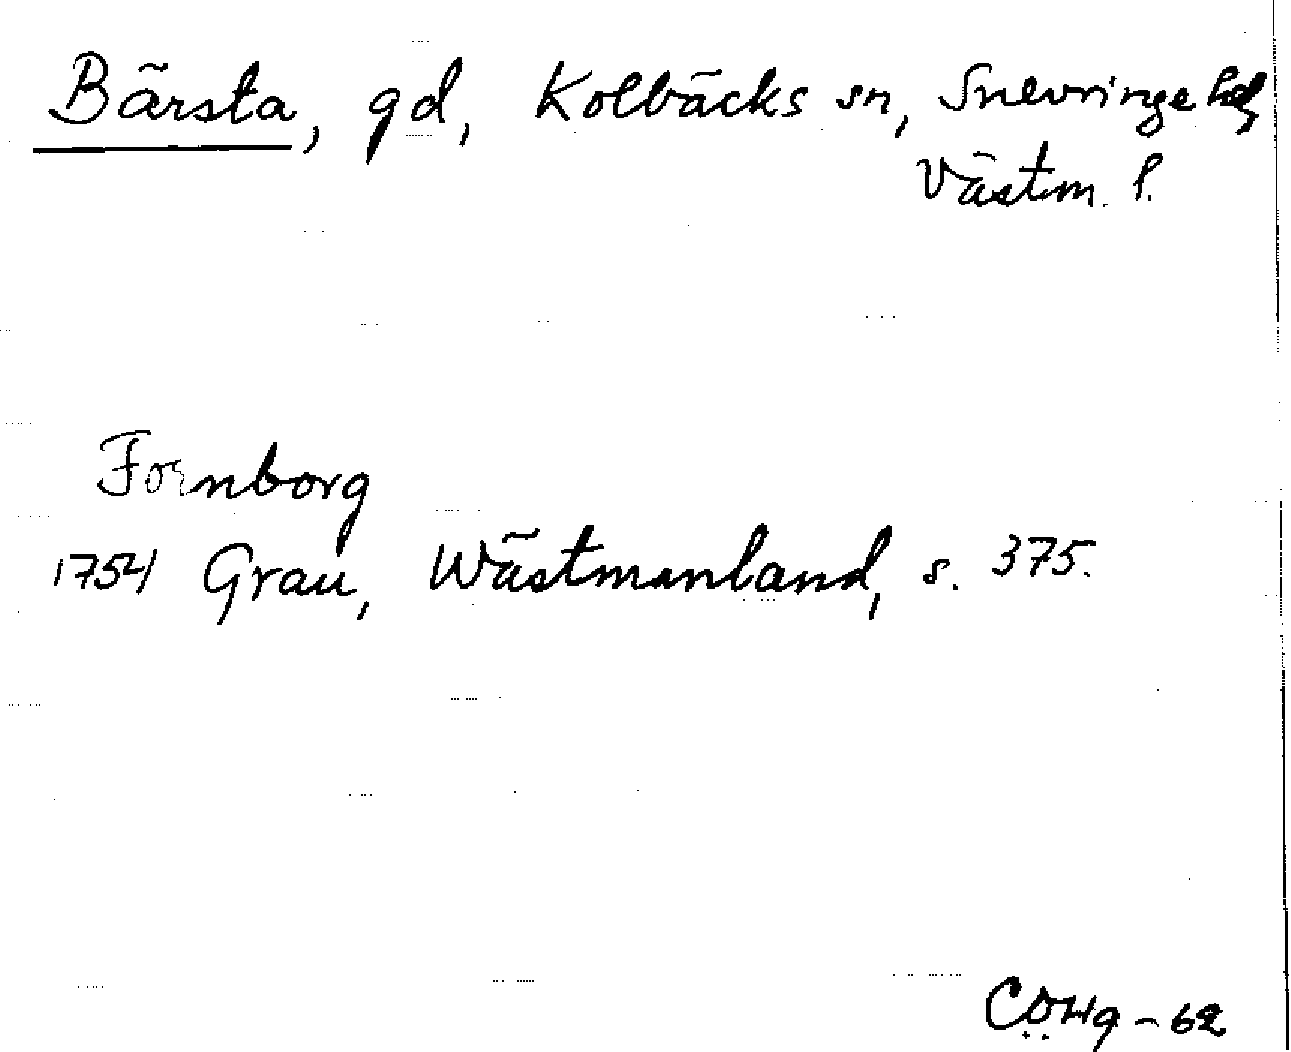 Bärsta, gd, Kolbäcks sn, Snevringe hd,
Västm. l.
Fornborg
1754 Grau, Wästmanland, s. 375.
CÖHg - 62